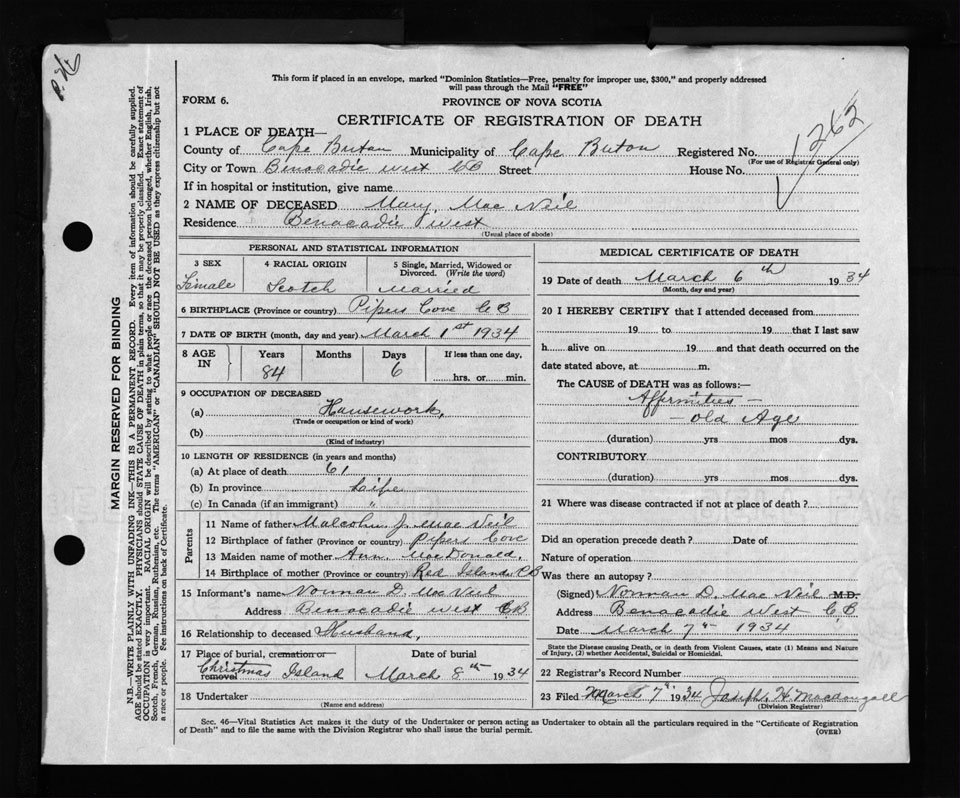 P.H.
This form if placed in an envelope, marked "Dominion Statistics—Free, penalty for improper use, $300," and properly addressed
will pass through the Mail "FREE"
FORM 6.
PROVINCE OF NOVA SCOTIA
CERTIFICATE OF REGISTRATION OF DEATH
1 PLACE OF DEATH—
County of Cape Breton Municipality of Cape Breton Registered No. 1262
(For use of Registrar General only)
City or Town Benacadie west CB Street House No.
If in hospital or institution, give name
2 NAME OF DECEASED Mary Mac Neil
Residence Benacadie west
(Usual place of abode)
PERSONAL AND STATISTICAL INFORMATION
3 SEX 4 RACIAL ORIGIN 5 Single, Married, Widowed or
Divorced. (Write the word)
Female Scotch married
6 BIRTHPLACE (Province or country) Pipers Cove CB
7 DATE OF BIRTH (month, day and year) March 1st 1934
8 AGE IN Years Months Days If less than one day,
84 6 hrs. or min.
9 OCCUPATION OF DECEASED
(a) Housework,
(Trade or occupation or kind of work)
(b)
(Kind of industry)
10 LENGTH OF RESIDENCE (in years and months)
(a) At place of death 61
(b) In province Life
(c) In Canada (if an immigrant) "
Parents
11 Name of father Malcolm J. Mac Neil
12 Birthplace of father (Province or country) Pipers Cove
13 Maiden name of mother Ann MacDonald,
14 Birthplace of mother (Province or country) Red Islands CB
15 Informant's name Norman D. Mac Neil
Address Benacadie west CB
16 Relationship to deceased Husband,
17 Place of burial, cremation or Date of burial
removal Christmas Island March 8th 1934
18 Undertaker
(Name and address)
MEDICAL CERTIFICATE OF DEATH
19 Date of death March 6th 1934
(Month, day and year)
20 I HEREBY CERTIFY that I attended deceased from
19 to 19 that I last saw
h alive on 19 and that death occurred on the
date stated above, at m.
The CAUSE OF DEATH was as follows:—
Affirmities —
— old Age
(duration) yrs mos dys.
CONTRIBUTORY
(duration) yrs mos dys.
21 Where was disease contracted if not at place of death?
Did an operation precede death? Date of
Nature of operation
Was there an autopsy?
(Signed) Norman D. Mac Neil M.D.
Address Benacadie West CB
Date March 7th 1934
State the Disease causing Death, or in death from Violent Causes, state (1) Means and Nature
of Injury, (2) whether Accidental, Suicidal or Homicidal.
22 Registrar's Record Number
23 Filed March 7th 1934 Joseph H Macdougall
(Division Registrar)
Sec. 46—Vital Statistics Act makes it the duty of the Undertaker or person acting as Undertaker to obtain all the particulars required in the "Certificate of Registration
of Death" and to file the same with the Division Registrar who shall issue the burial permit.
(OVER)
MARGIN RESERVED FOR BINDING
N.B.—WRITE PLAINLY WITH UNFADING INK—THIS IS A PERMANENT RECORD. Every item of information should be carefully supplied.
AGE should be stated EXACTLY. PHYSICIANS should STATE CAUSE OF DEATH in plain terms, so that it may be properly classified. Exact statement of
OCCUPATION is very important. RACIAL ORIGIN will be described by stating to what people or race the deceased person belonged, whether English, Irish,
Scotch, French, German, Russian, Ruthenian, etc. The terms "AMERICAN" or "CANADIAN" SHOULD NOT BE USED as they express citizenship but not
a race or people. See instructions on back of Certificate.